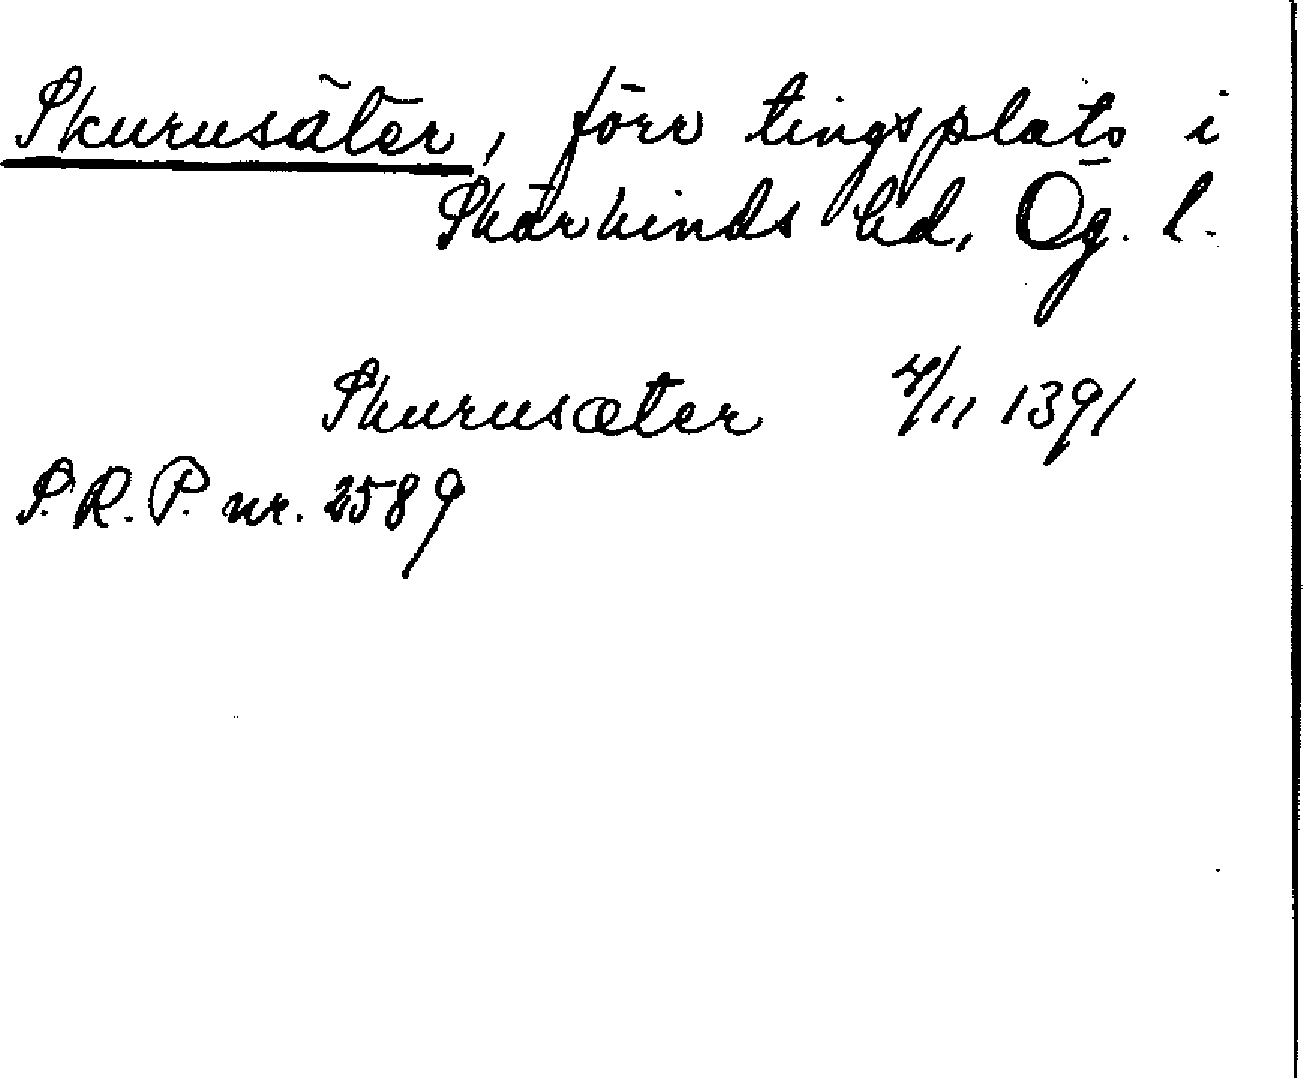 Skurusäter, förr tingsplats i
Skärkinds hd, Ög. l.
Skurusæter 4/11 1391
S.R.P. nr. 2589